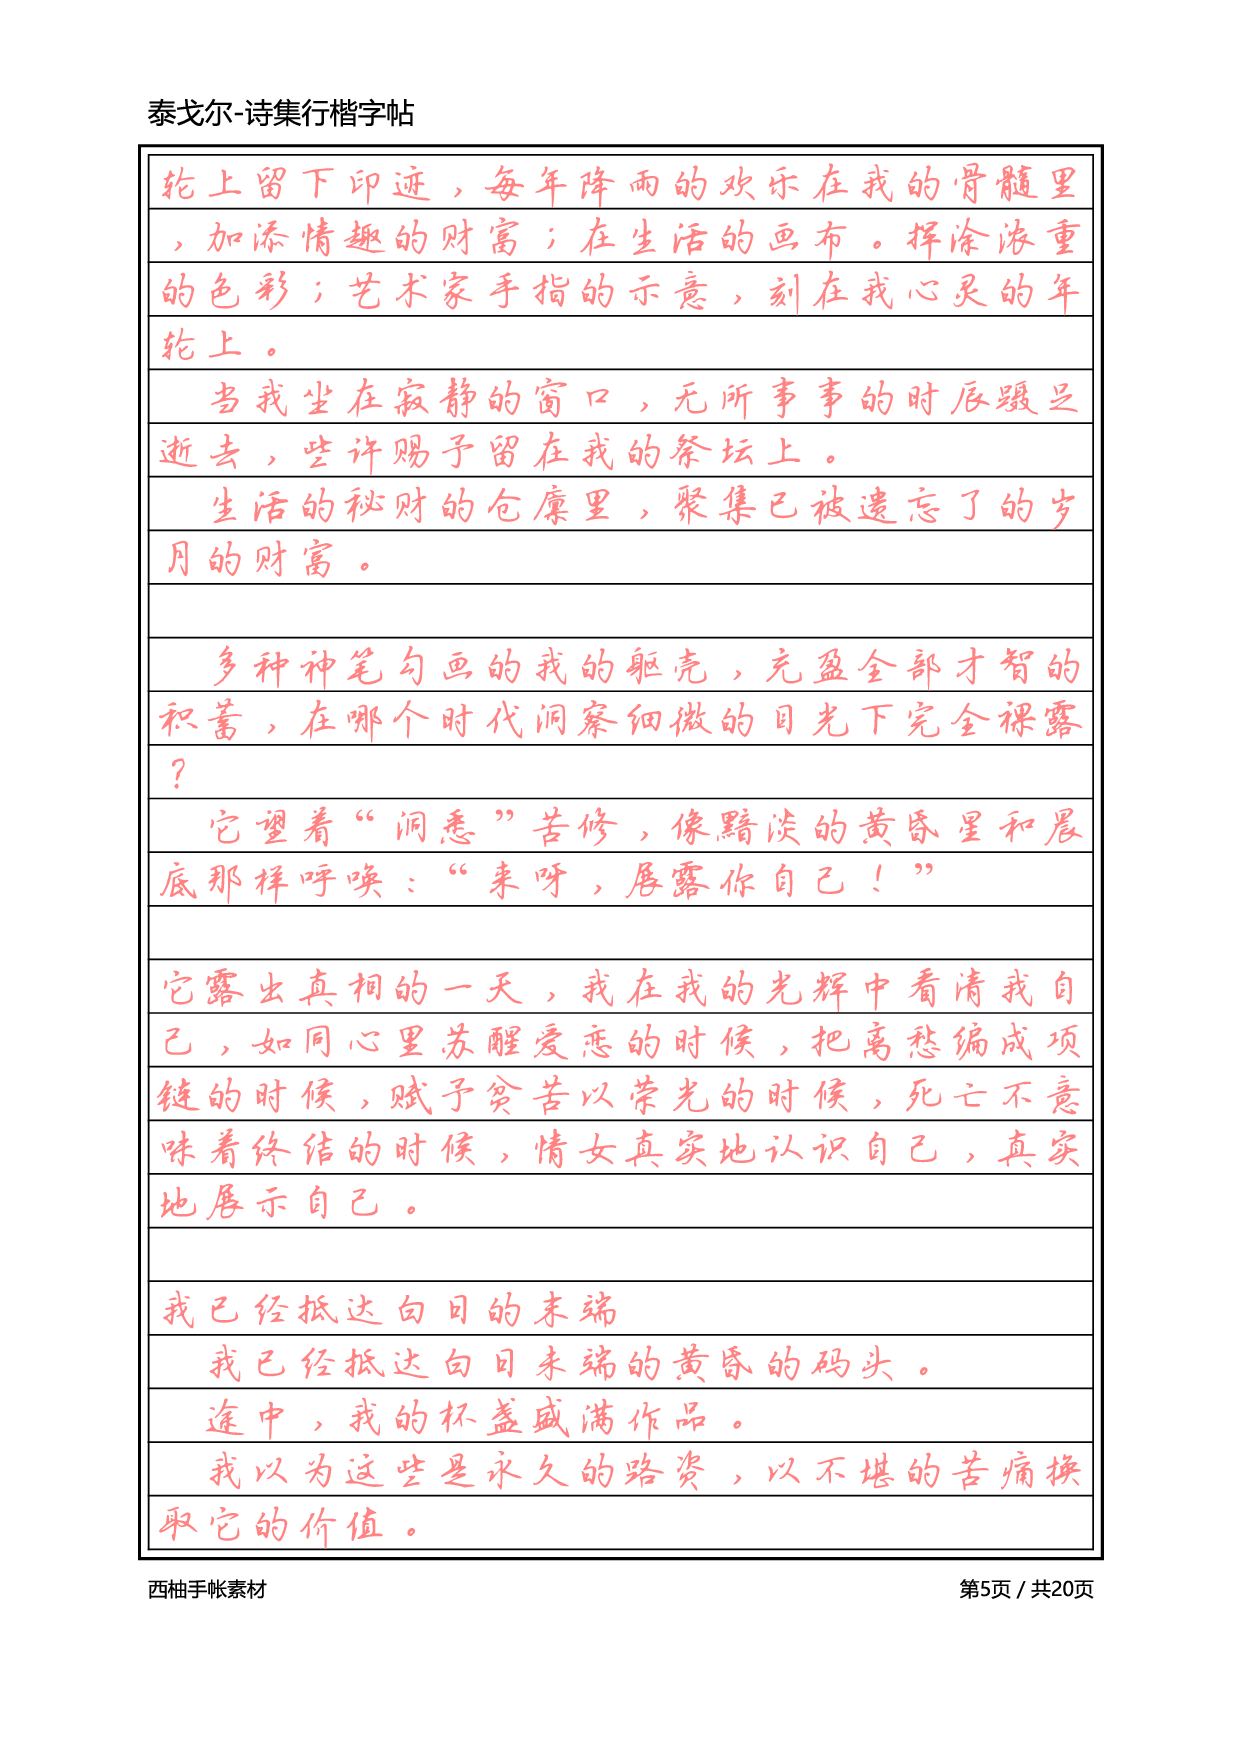 泰戈尔-诗集行楷字帖
轮上留下印迹，每年降雨的欢乐在我的骨髓里
，加添情趣的财富；在生活的画布。挥涂浓重
的色彩；艺术家手指的示意，刻在我心灵的年
轮上。
当我坐在寂静的窗口，无所事事的时辰蹑足
逝去，些许赐予留在我的祭坛上。
生活的秘财的仓廪里，聚集已被遗忘了的岁
月的财富。
多种神笔勾画的我的躯壳，充盈全部才智的
积蓄，在哪个时代洞察细微的目光下完全裸露
？
它望着“洞悉”苦修，像黯淡的黄昏星和晨
底那样呼唤：“来呀，展露你自己！”
它露出真相的一天，我在我的光辉中看清我自
己，如同心里苏醒爱恋的时候，把离愁编成项
链的时候，赋予贫苦以荣光的时候，死亡不意
味着终结的时候，情女真实地认识自己，真实
地展示自己。
我已经抵达白日的末端
我已经抵达白日末端的黄昏的码头。
途中，我的杯盏盛满作品。
我以为这些是永久的路资，以不堪的苦痛换
取它的价值。
西柚手帐素材
第5页 / 共20页